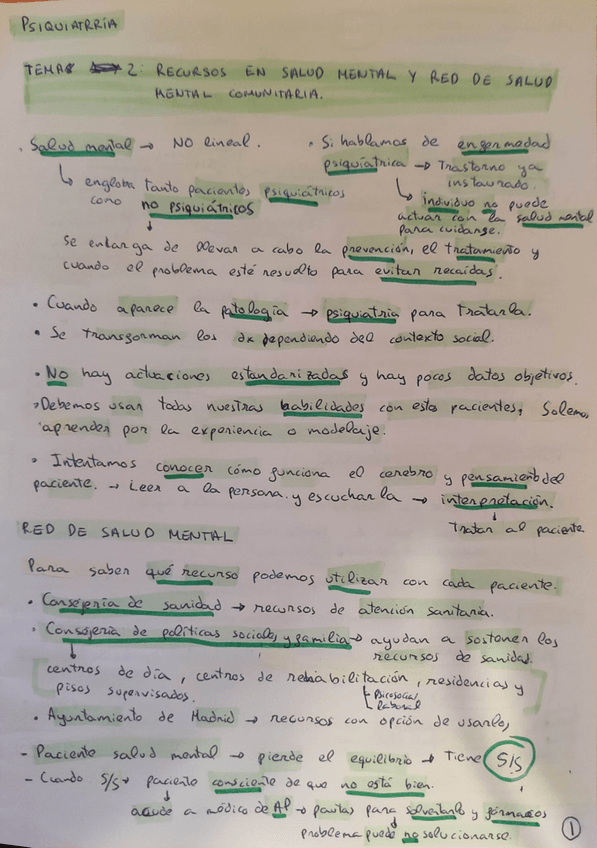 PSIQUIATRRÍA
TEMA 2: RECURSOS EN SALUD MENTAL Y RED DE SALUD
MENTAL COMUNITARIA.
. Salud mental → NO lineal.
↳ engloba tanto pacientes psiquiátricos
como no psiquiátricos
• Si hablamos de enfermedad
psiquiátrica → Trastorno ya
instaurado.
↳ individuo no puede
actuar con la salud mental
para cuidarse.
↓
se encarga de llevar a cabo la prevención, el tratamiento y
cuando el problema esté resuelto para evitar recaídas.
• Cuando aparece la patología → psiquiatría para tratarla.
• Se transforman los dx dependiendo del contexto social.
• No hay actuaciones estandarizadas y hay pocos datos objetivos.
• Debemos usar todas nuestras habilidades con estos pacientes, Solemos
aprender por la experiencia o modelaje.
• Intentamos conocer cómo funciona el cerebro y pensamiento del
paciente. → Leer a la persona y escucharla → interpretación.
↓
Tratar al paciente
RED DE SALUD MENTAL
Para saber qué recurso podemos utilizar con cada paciente.
• Consejería de sanidad → recursos de atención sanitaria.
• Consejería de políticas sociales y familia → ayudan a sostener los
recursos de sanidad.
centros de día, centros de rehabilitación, residencias y
pisos supervisados.
Psicosocial
laboral
• Ayuntamiento de Madrid → recursos con opción de usarlos,
- Paciente salud mental → pierde el equilibrio → Tiene S/S
- Cuando S/S → paciente consciente de que no está bien.
↓
acude a médico de AP → pautas para solventarlo y fármacos
↓
problema puede no solucionarse.
1